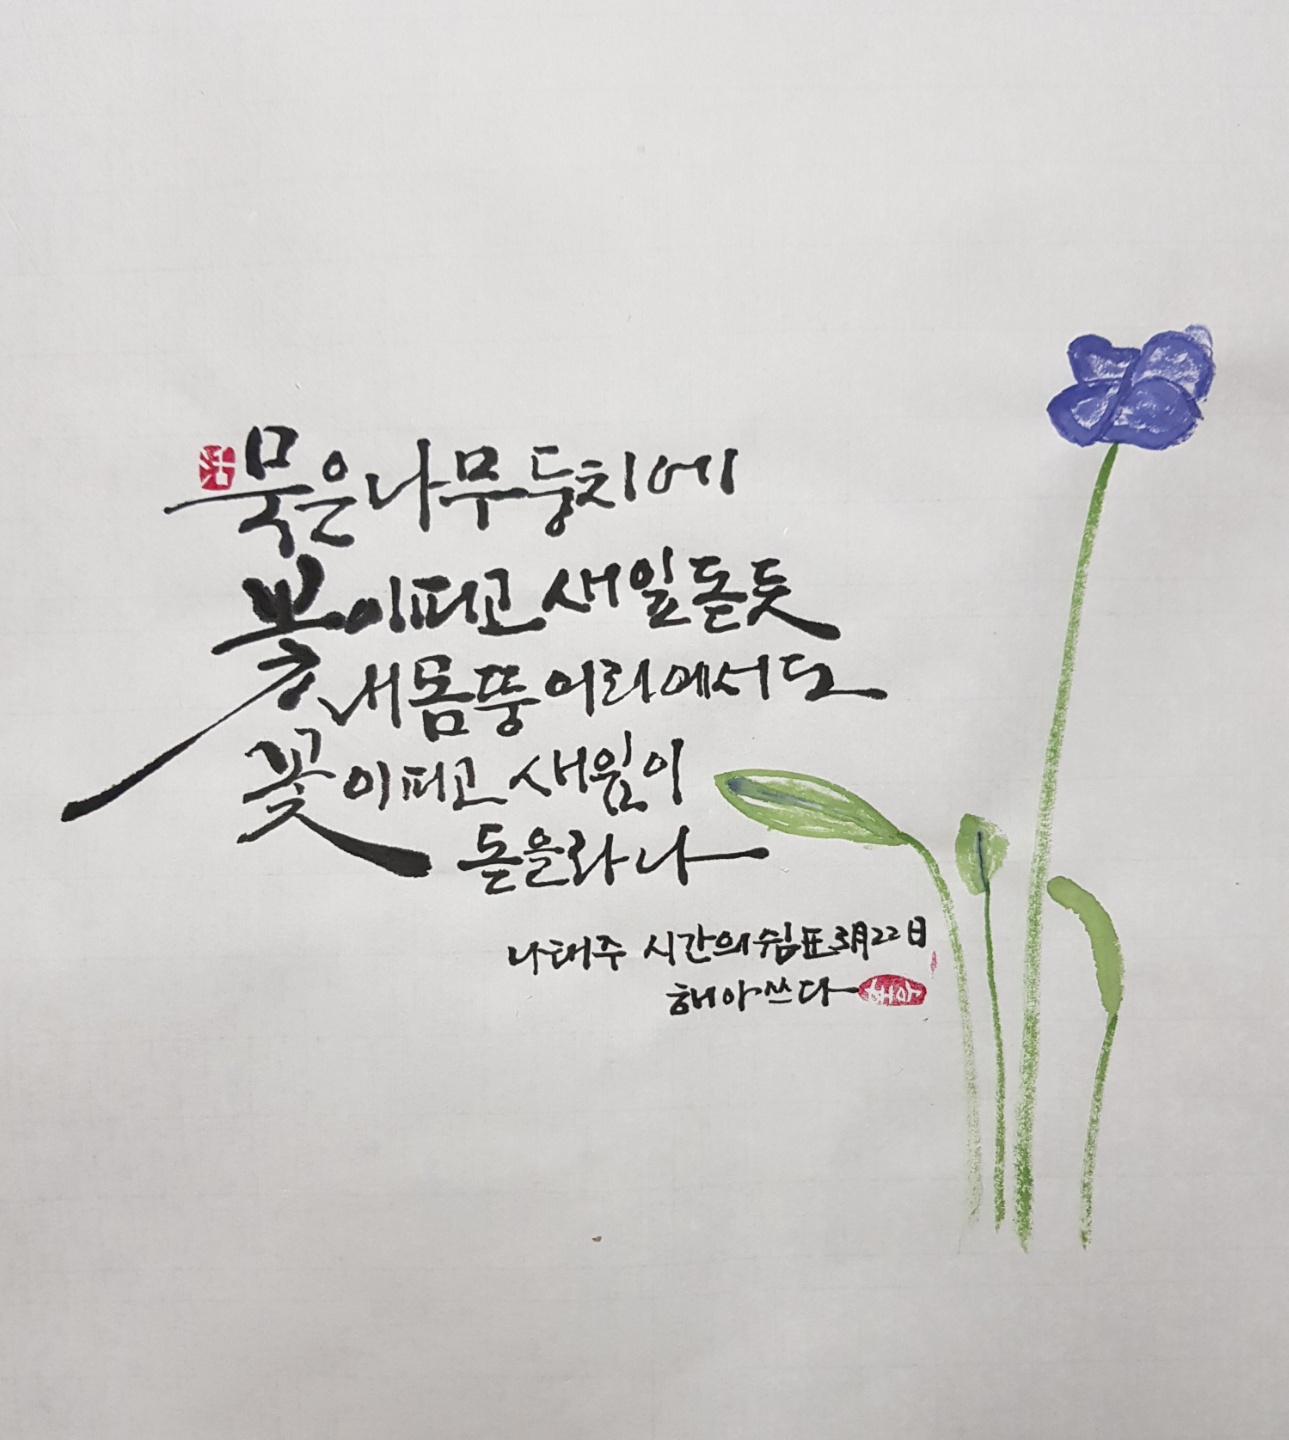 묵은 나무 둥치에
꽃이 피고 새 잎 돋듯
내 몸뚱어리에서도
꽃이 피고 새 잎이
돋을라나
나태주 시간의 쉼표 3月22日
해아 쓰다 해아